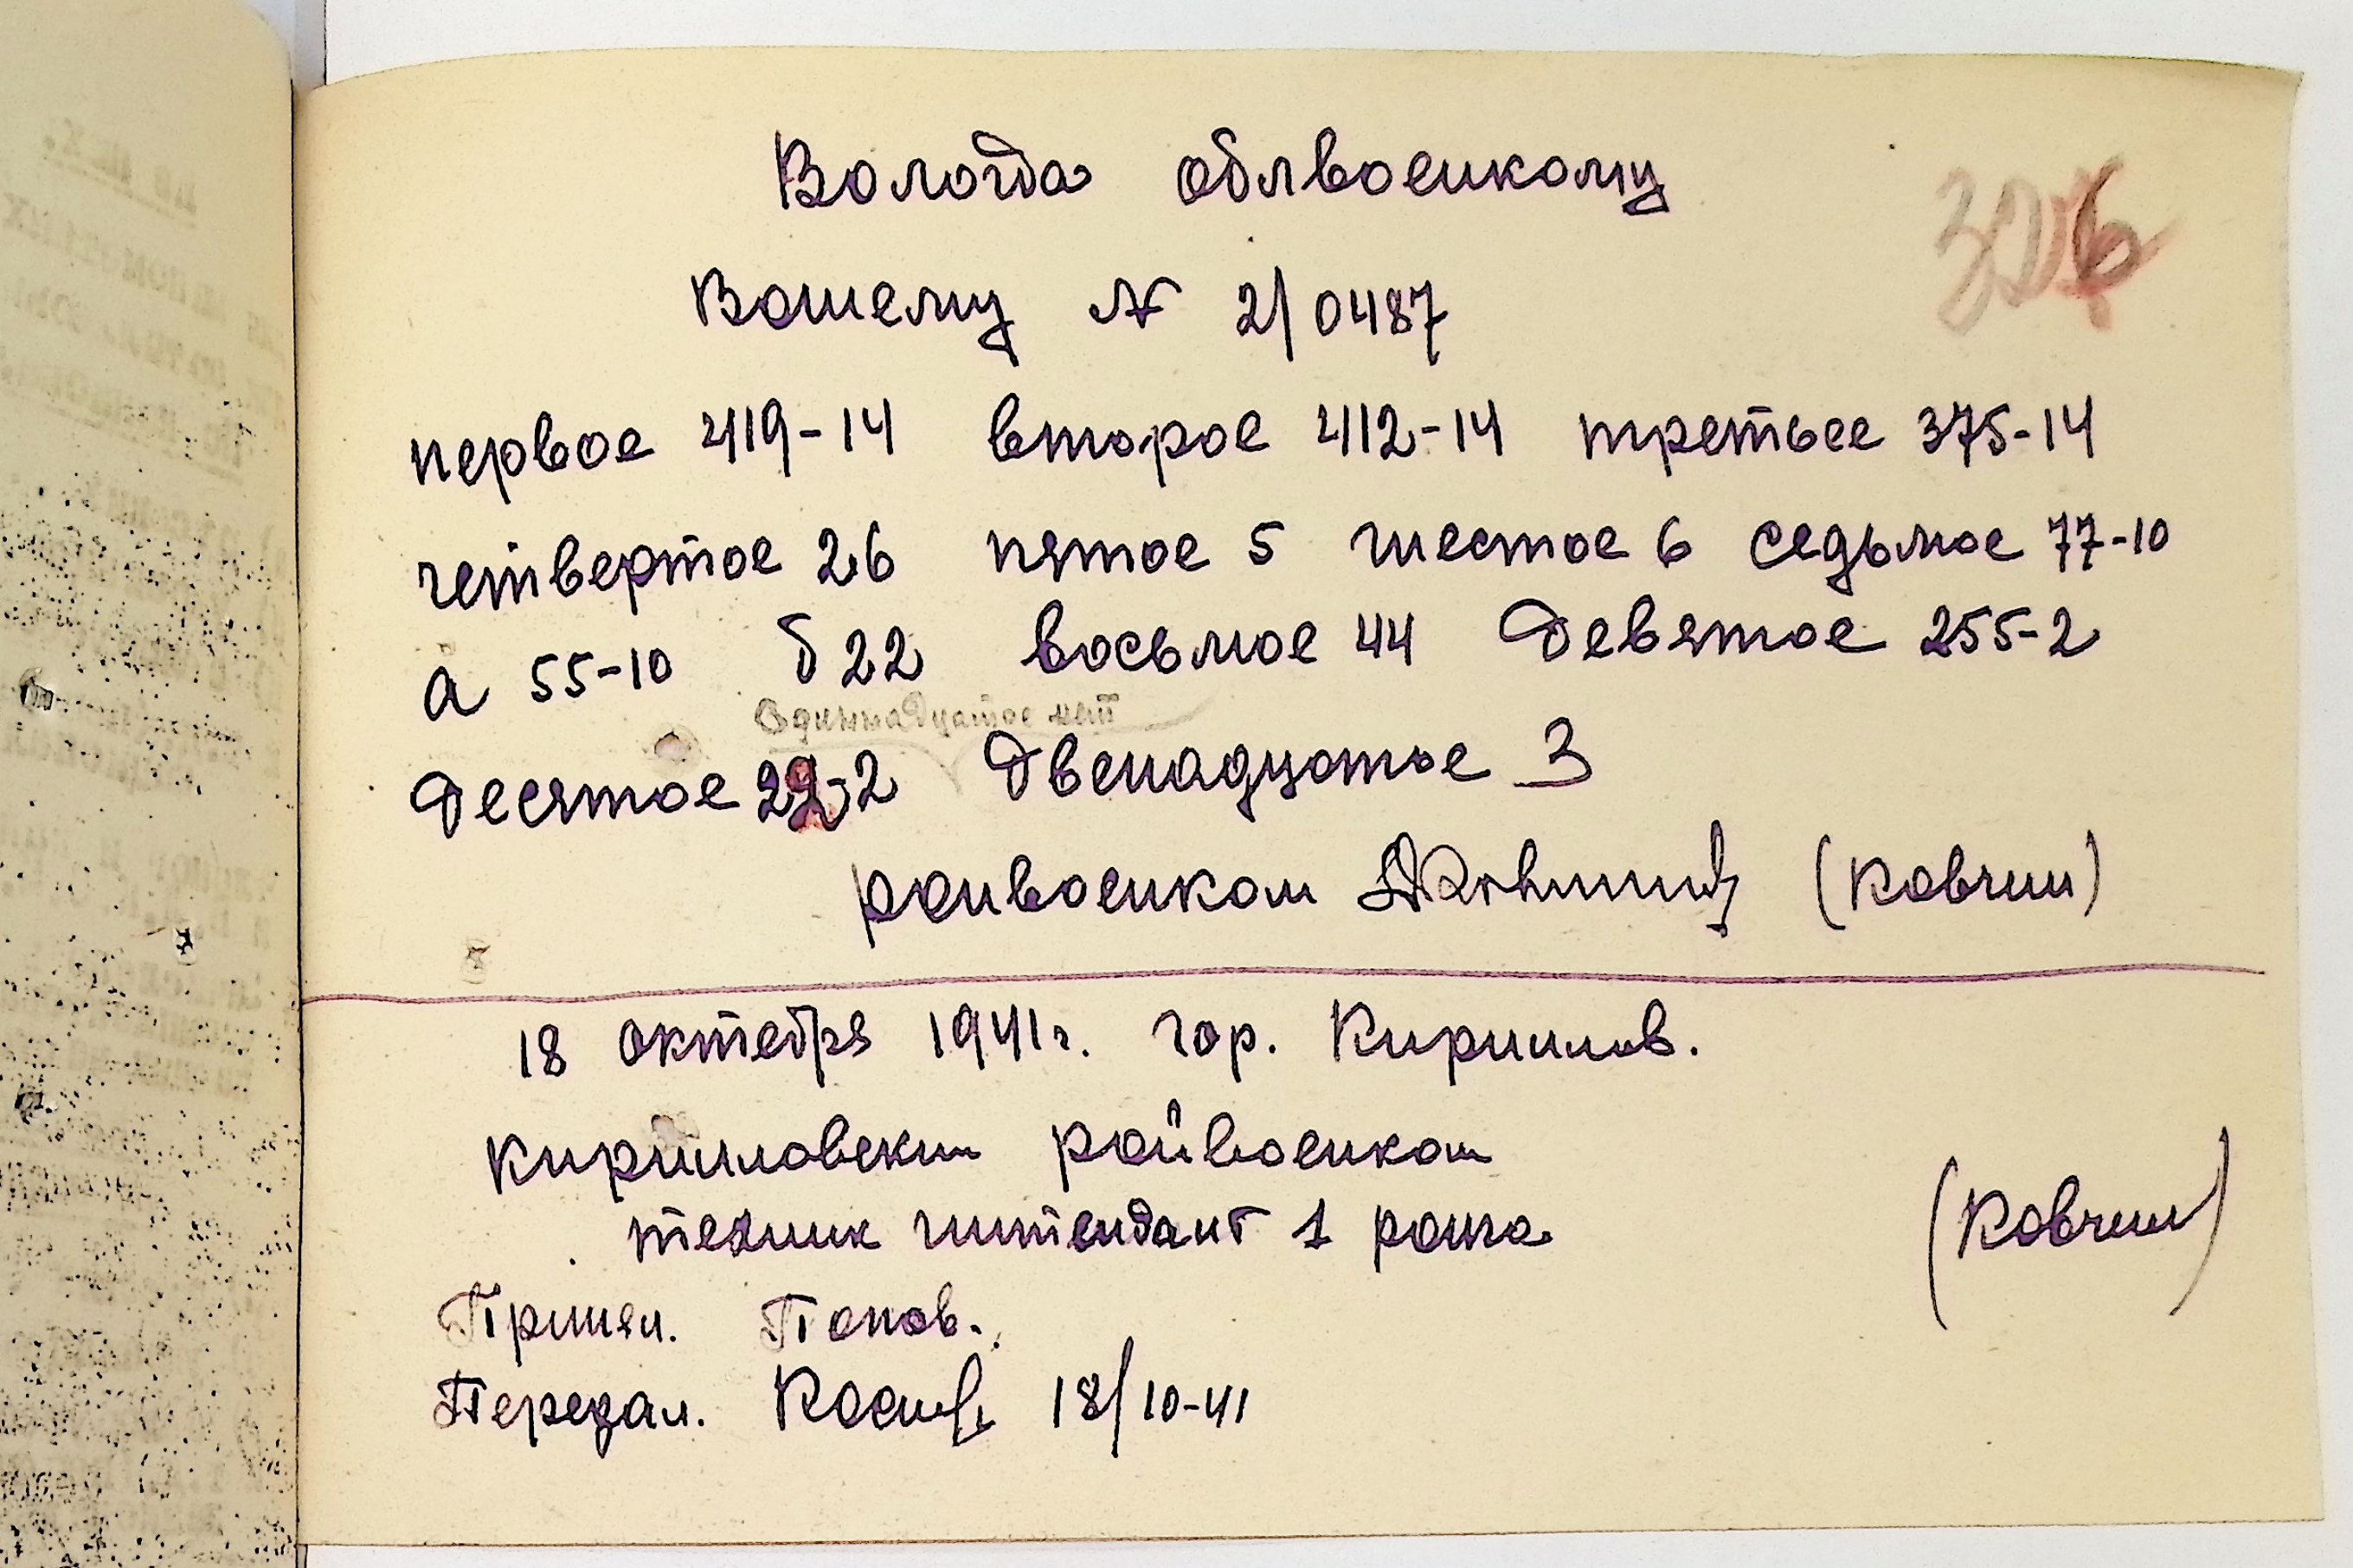 Вологда облвоенкому
326
Вашему № 2/0487
первое 419-14 второе 412-14 третьее 375-14
четвертое 26 пятое 5 шестое 6 седьмое 77-10
а 55-10 б 22 восьмое 44 девятое 255-2
Одиннадцатое нет
Десятое 22-2 Двенадцатое 3
райвоенком (Ковчин)
18 октября 1941г. гор. Кириллов.
Кирилловский райвоенком
техник интендант 1 ранга (Ковчин)
Принял. Попов.
Передал. 18/10-41